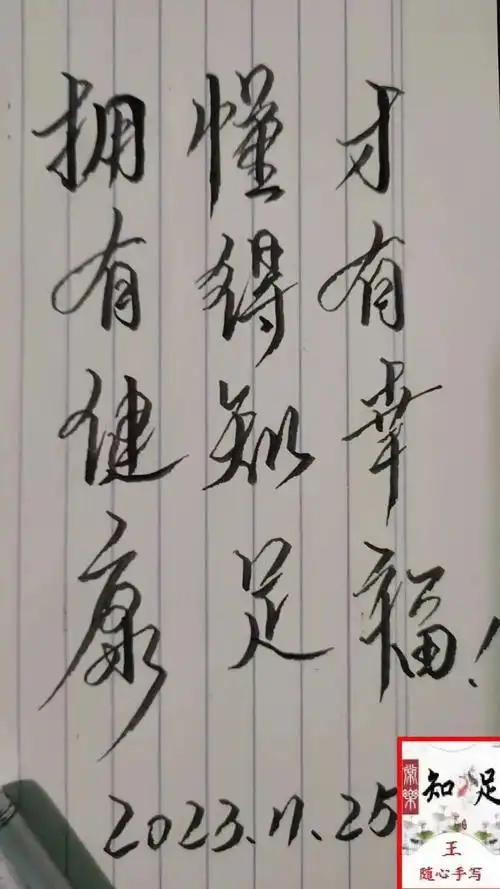 拥有健康
懂得知足
才有幸福!
2023.11.25
知足
常樂
王
随心手写